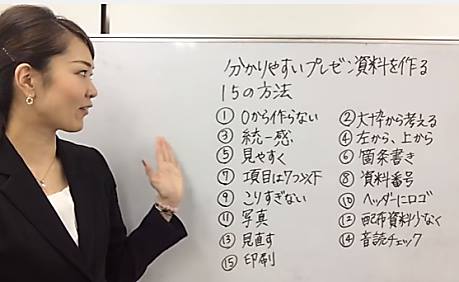 分かりやすいプレゼン資料を作る
15の方法
① 0から作らない ② 大枠から考える
③ 統一感 ④ 左から、上から
⑤ 見やすく ⑥ 箇条書き
⑦ 項目は7つ以下 ⑧ 資料番号
⑨ こりすぎない ⑩ ヘッダーにロゴ
⑪ 写真 ⑫ 配布資料少なく
⑬ 見直す ⑭ 音読チェック
⑮ 印刷